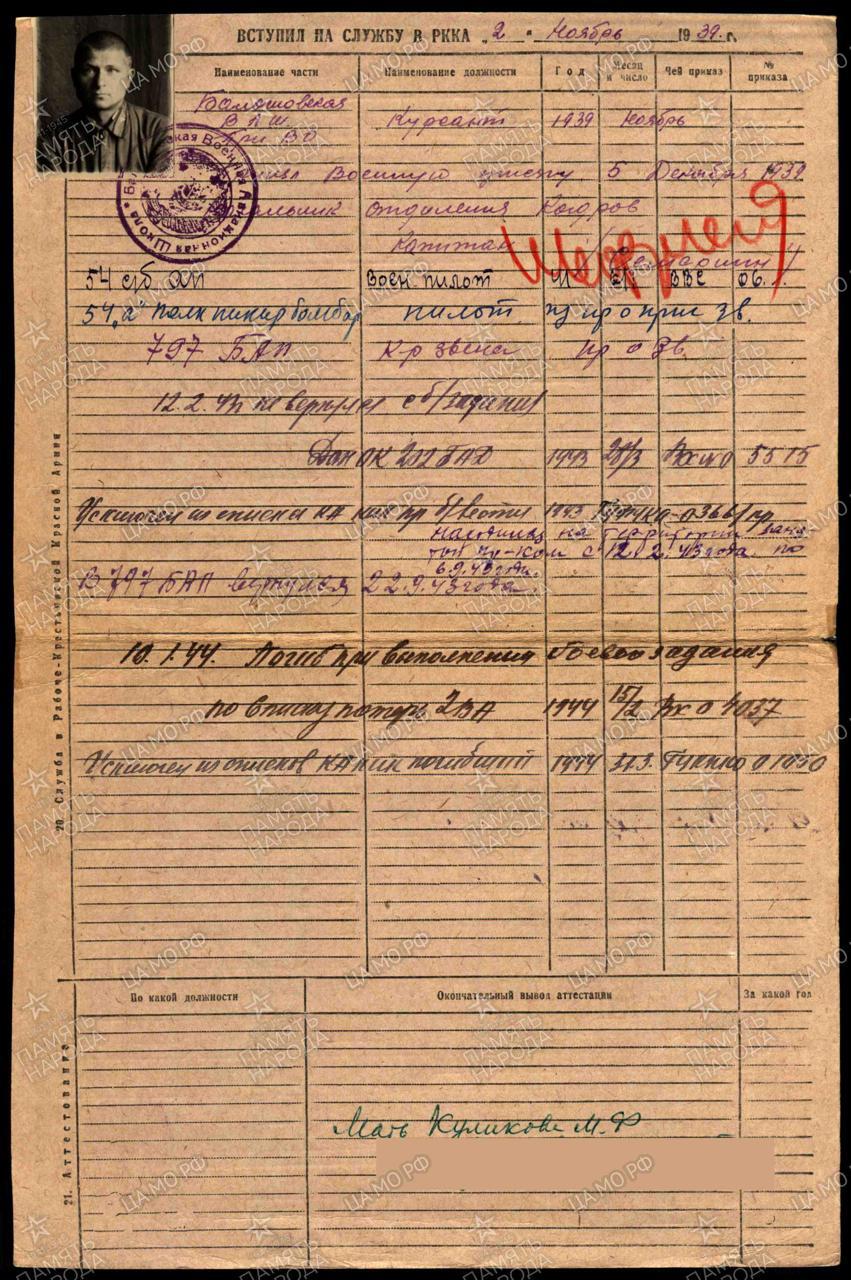 ВСТУПИЛ НА СЛУЖБУ В РККА „2" Ноябрь 1939 г.
Наименование части Наименование должности Год Месяц и число Чей приказ № приказа
Балашовская
ВАШ Курсант 1939 Ноябрь
При ВО
Военную присягу 5 Декабря 1939
отделения Кадров
Капитан
54 сб АП Воен. пилот ВВС 06.
54 „а" полк пикир бомбар пилот пр о зв.
797 БАП К-р звена пр о зв.
12.2.43 не вернулся с б/задания
Дон ОК 202 БАД 1943 28/3 Вх № 0 5515
Исключен из списка КА как пр. б/вести 1943 ГУК НКО 0366/пр
находился на территории заня-
той пр-ком с 12.2.43 года по
6.9.43 года.
В 797 БАП вернулся 22.9.43 года.
10.1.44. Погиб при выполнении боевого задания
по списку потерь 2 ВА 1944 15/2 Вх 0 4037
Исключен из списков КА как погибший 1944 31.3. ГУК НКО 01050
20. Служба в Рабоче-Крестьянской Красной Армии
По какой должности Окончательный вывод аттестации За какой год
21. Аттестование
Мать Куликова М.Ф
ПАМЯТЬ НАРОДА
ЦАМО.РФ